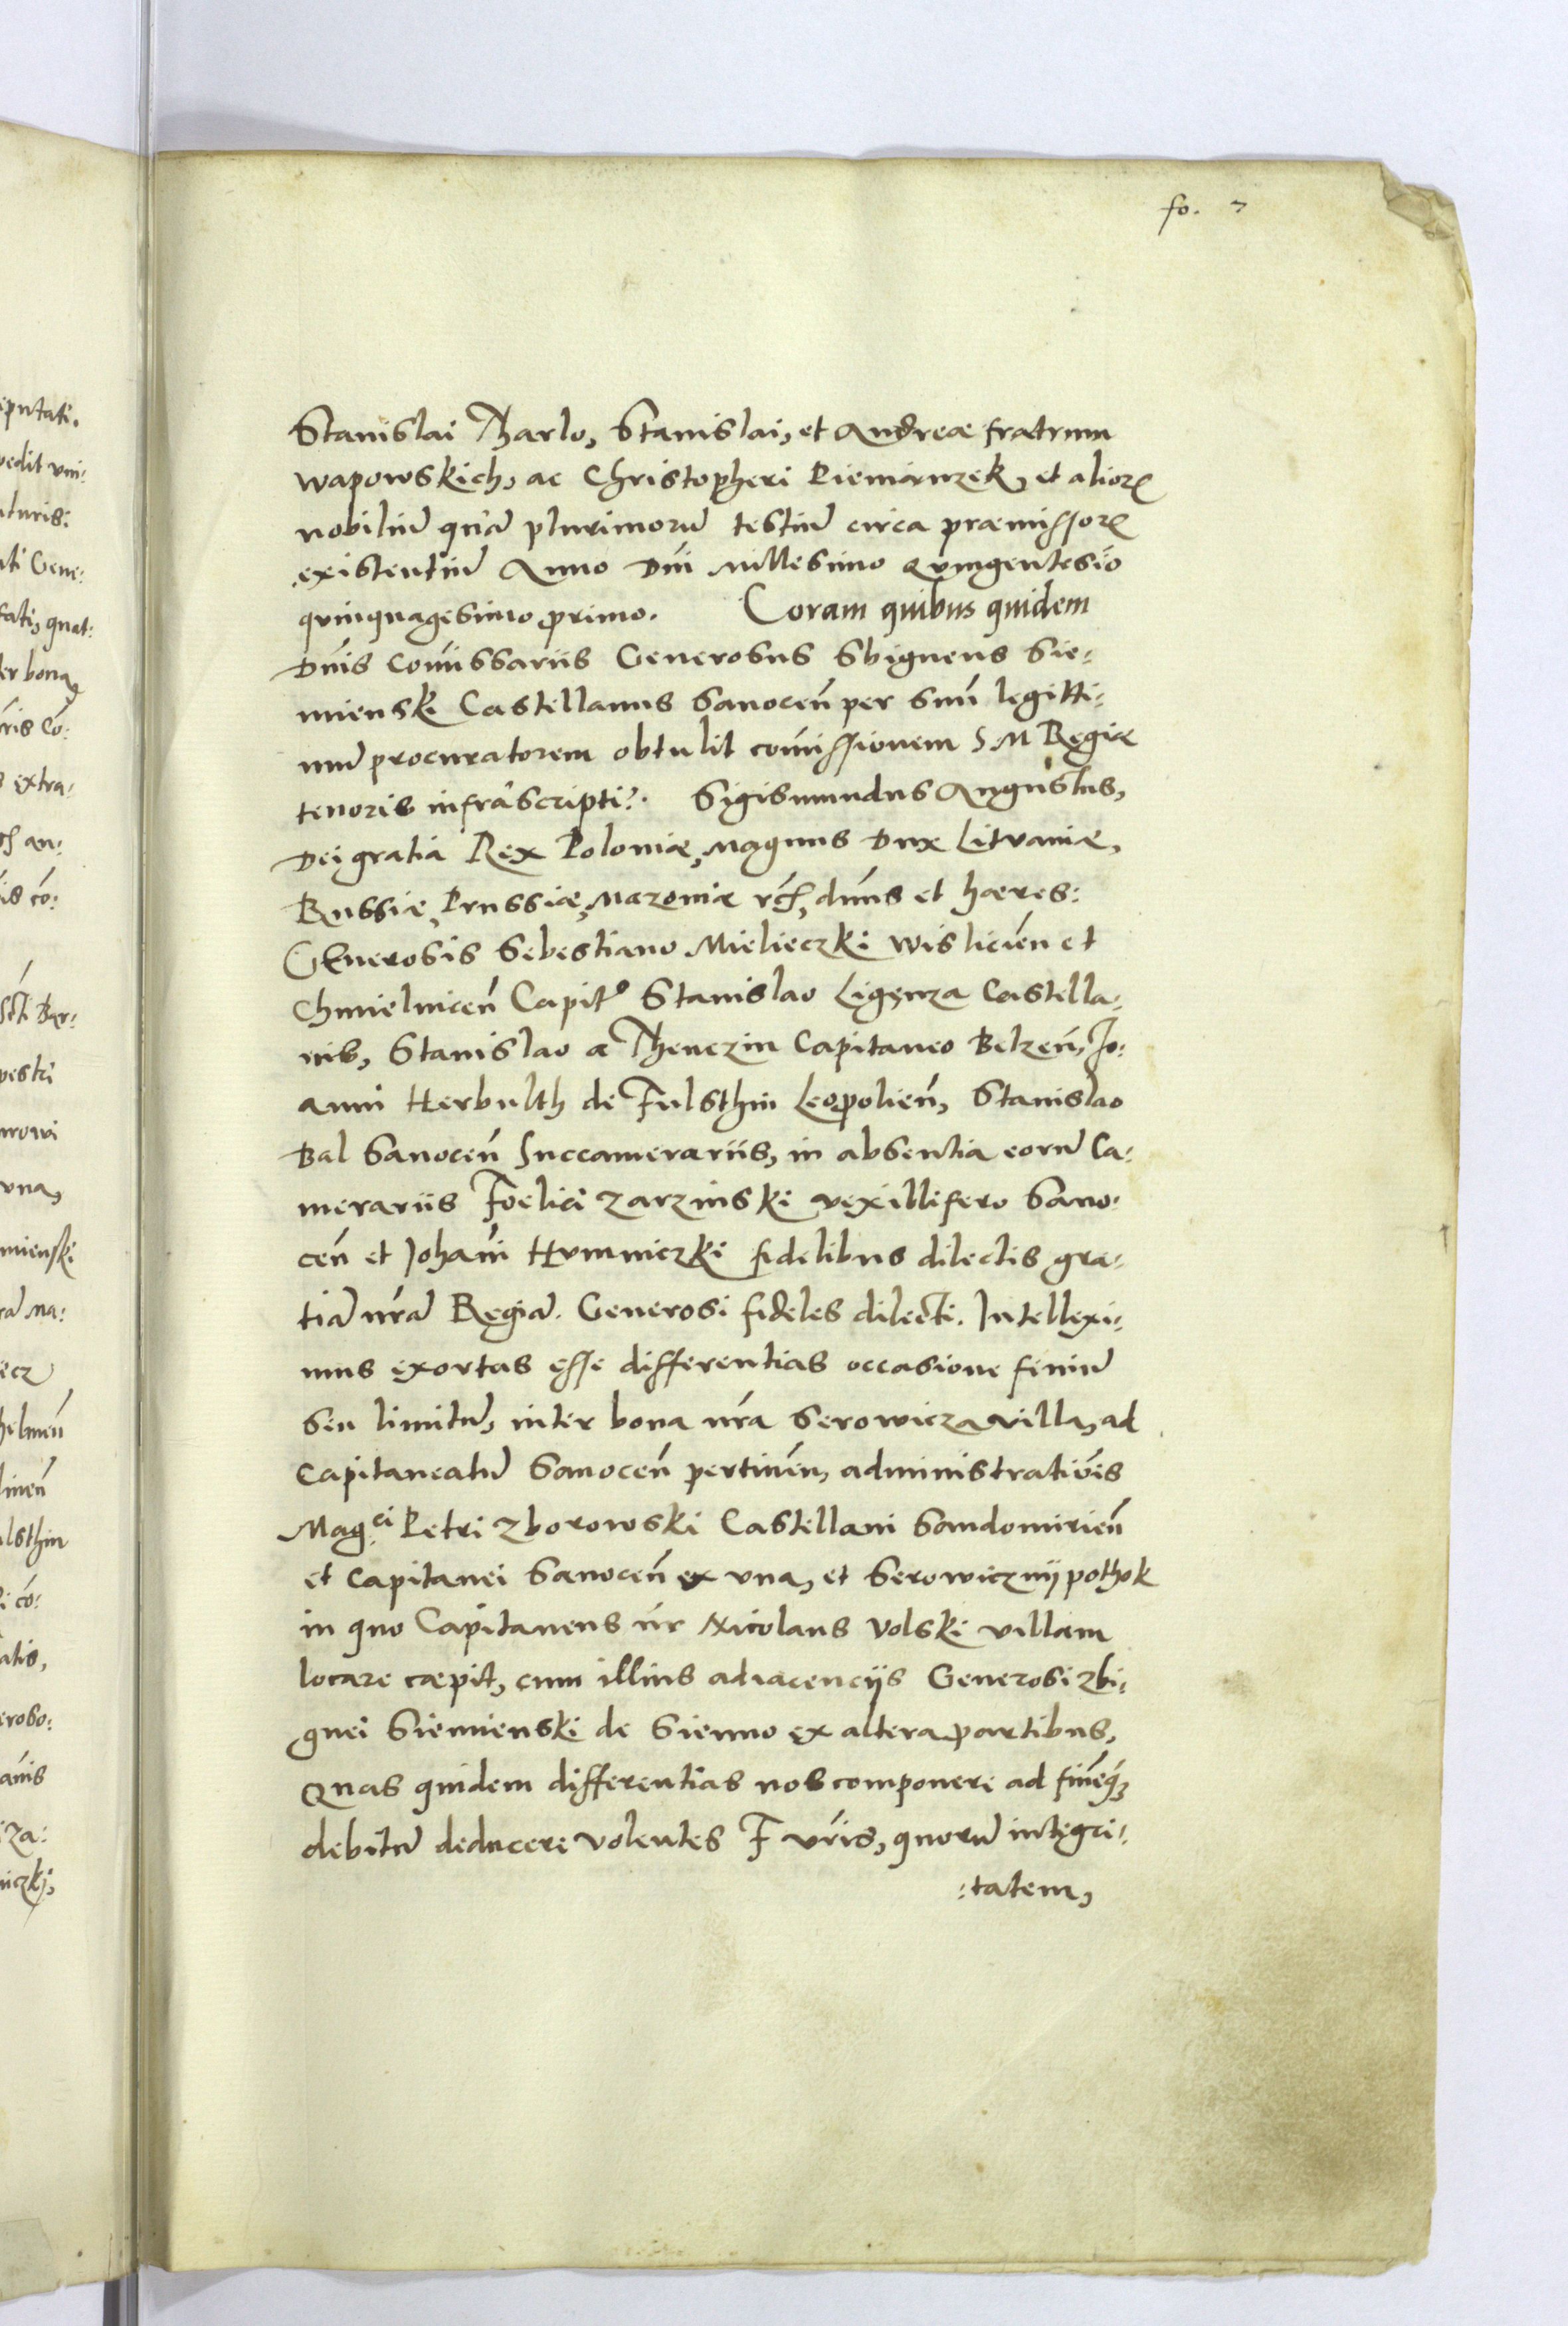 fo. 7
Stanislai Tharlo, Stanislai, et Andreæ fratrum
wapowskich, ac Christopheri Pieniąnzek, et alioꝝ
nobiliū quā plurimorū testiū circa præmissoꝝ
existentiū Anno Dn̄i Millesimo Quingentesīo
quinquagesimo primo. Coram quibus quidem
Dn̄is Com̄issariis Generosus Sbigneus Sie-
mienski Castellanus Sanoceñ per suū legitti-
mū procuratorem obtulit com̄issionem S M Regiæ
tenoris infrascripti. Sigismundus Augustus,
Dei gratia Rex Poloniæ, Magnus Dux Lituaniæ,
Russiæ, Prussiæ, Mazoniæ rc̄ꝭ, dn̄us et hæres:
GEnerosis Sebestiano Mielieczki wislicień et
Chmielniceñ Capit⁰ Stanislao Ligęnza Castella-
nis, Stanislao a Thenczin Capitaneo Belzeñ, Jo-
anni Herbulth de Fulsthin Leopolieñ, Stanislao
Bal Sanoceñ Succamerariis, in absentia eorū Ca-
merariis Fœlici Zarzinski vexillifero Sano-
ceñ et Johan̄i Humniczki fidelibus dilectis gra-
tiā nr̄ā Regiā. Generosi fideles dilecti. Intellexi-
mus exortas esse differentias occasione finiū
seu limitū, inter bona nr̄a Serowicza villa, ad
Capitaneatū Sanoceñ pertineñ, administratiōis
Mag:ci Petri Zborowski Castellani Sandomirieñ
et Capitanei Sanoceñ ex una, et Serowicznij pothok
in quo Capitaneus nr̄ Nicolaus Volski villam
locare cæpit, cum illius adiacencijs Generosi Zbi-
gnei Siemienski de Sienno ex altera partibus,
Quas quidem differentias nos componere ad finēq̄,
debitū deducere volentes F vr̄is, quorū integri-
:tatem,